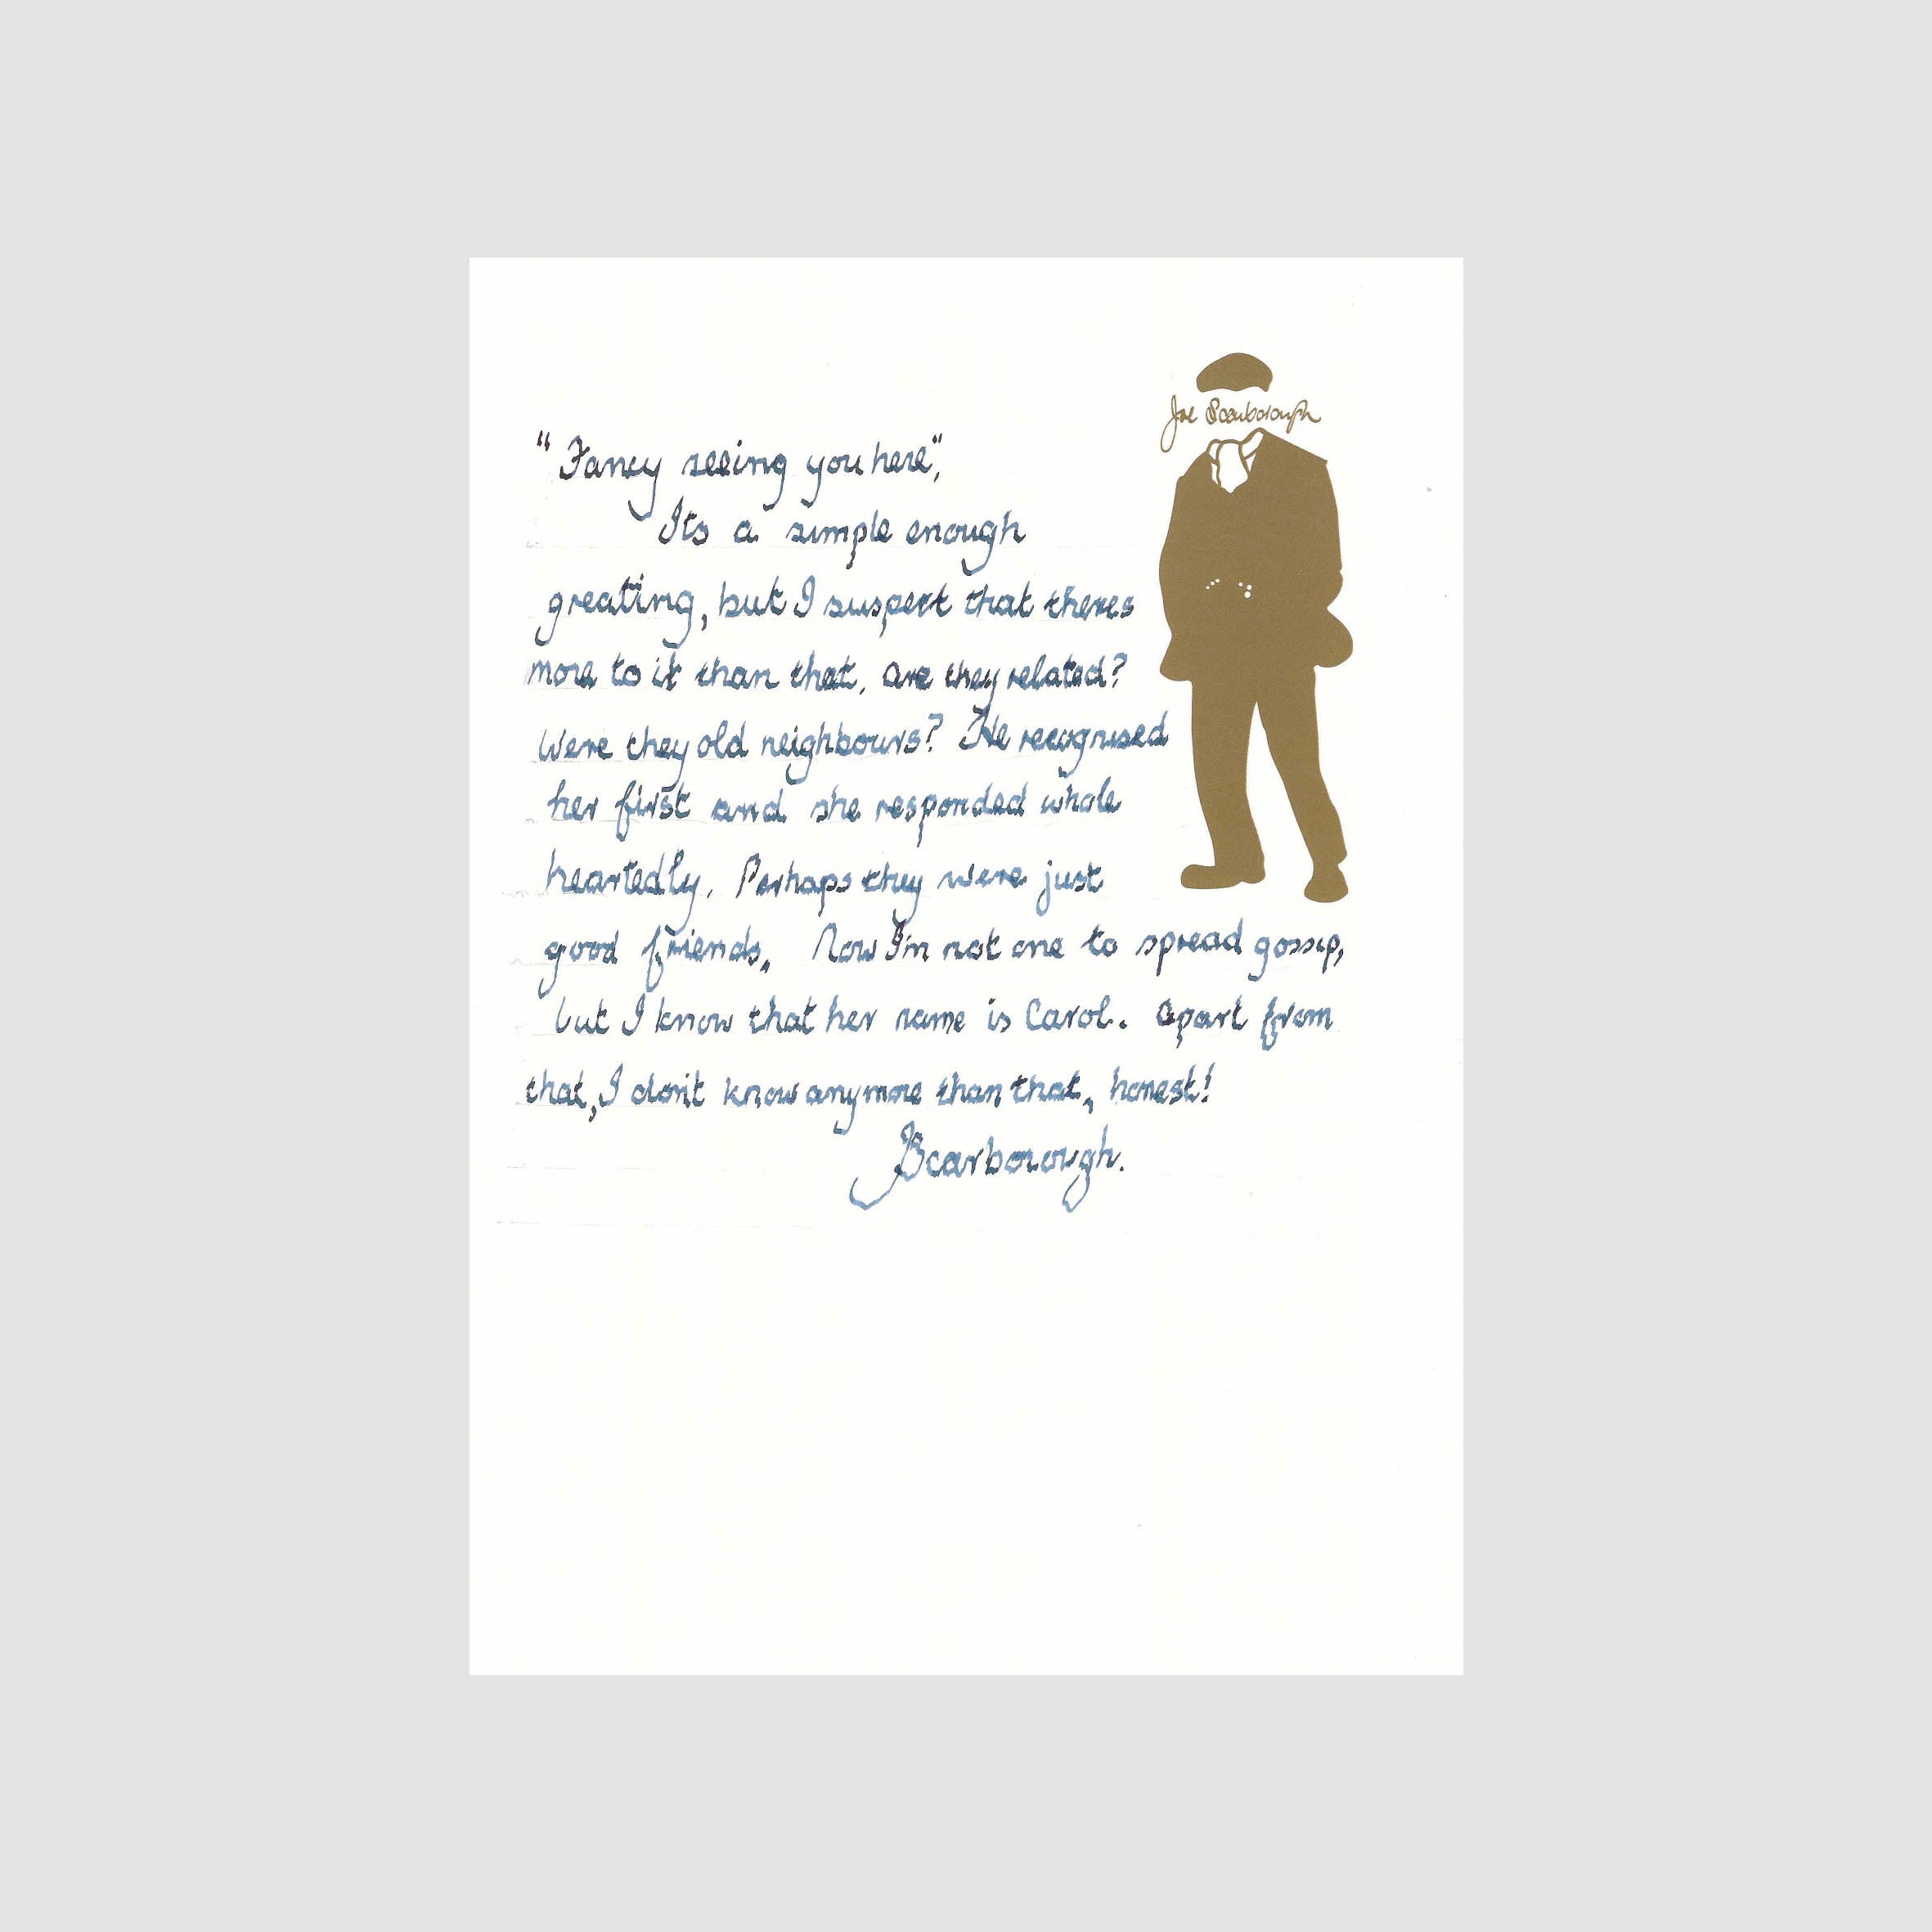 Joe Scarborough
"Fancy seeing you here",
Its a simple enough
greating, but I suspect that theres
more to it than that, are they related?
Were they old neighbours? He recognised
her first and she responded whole
heartedly. Perhaps they were just
good friends. Now I'm not one to spread gossip,
but I know that her name is Carol. Apart from
that, I don't know anymore than that, honest!
JScarborough.